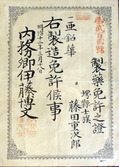 製薬免許之證
堺縣士族
藤田重次郎
一亜鉛華
右製造免許候事
明治十二年
内務卿伊藤博文